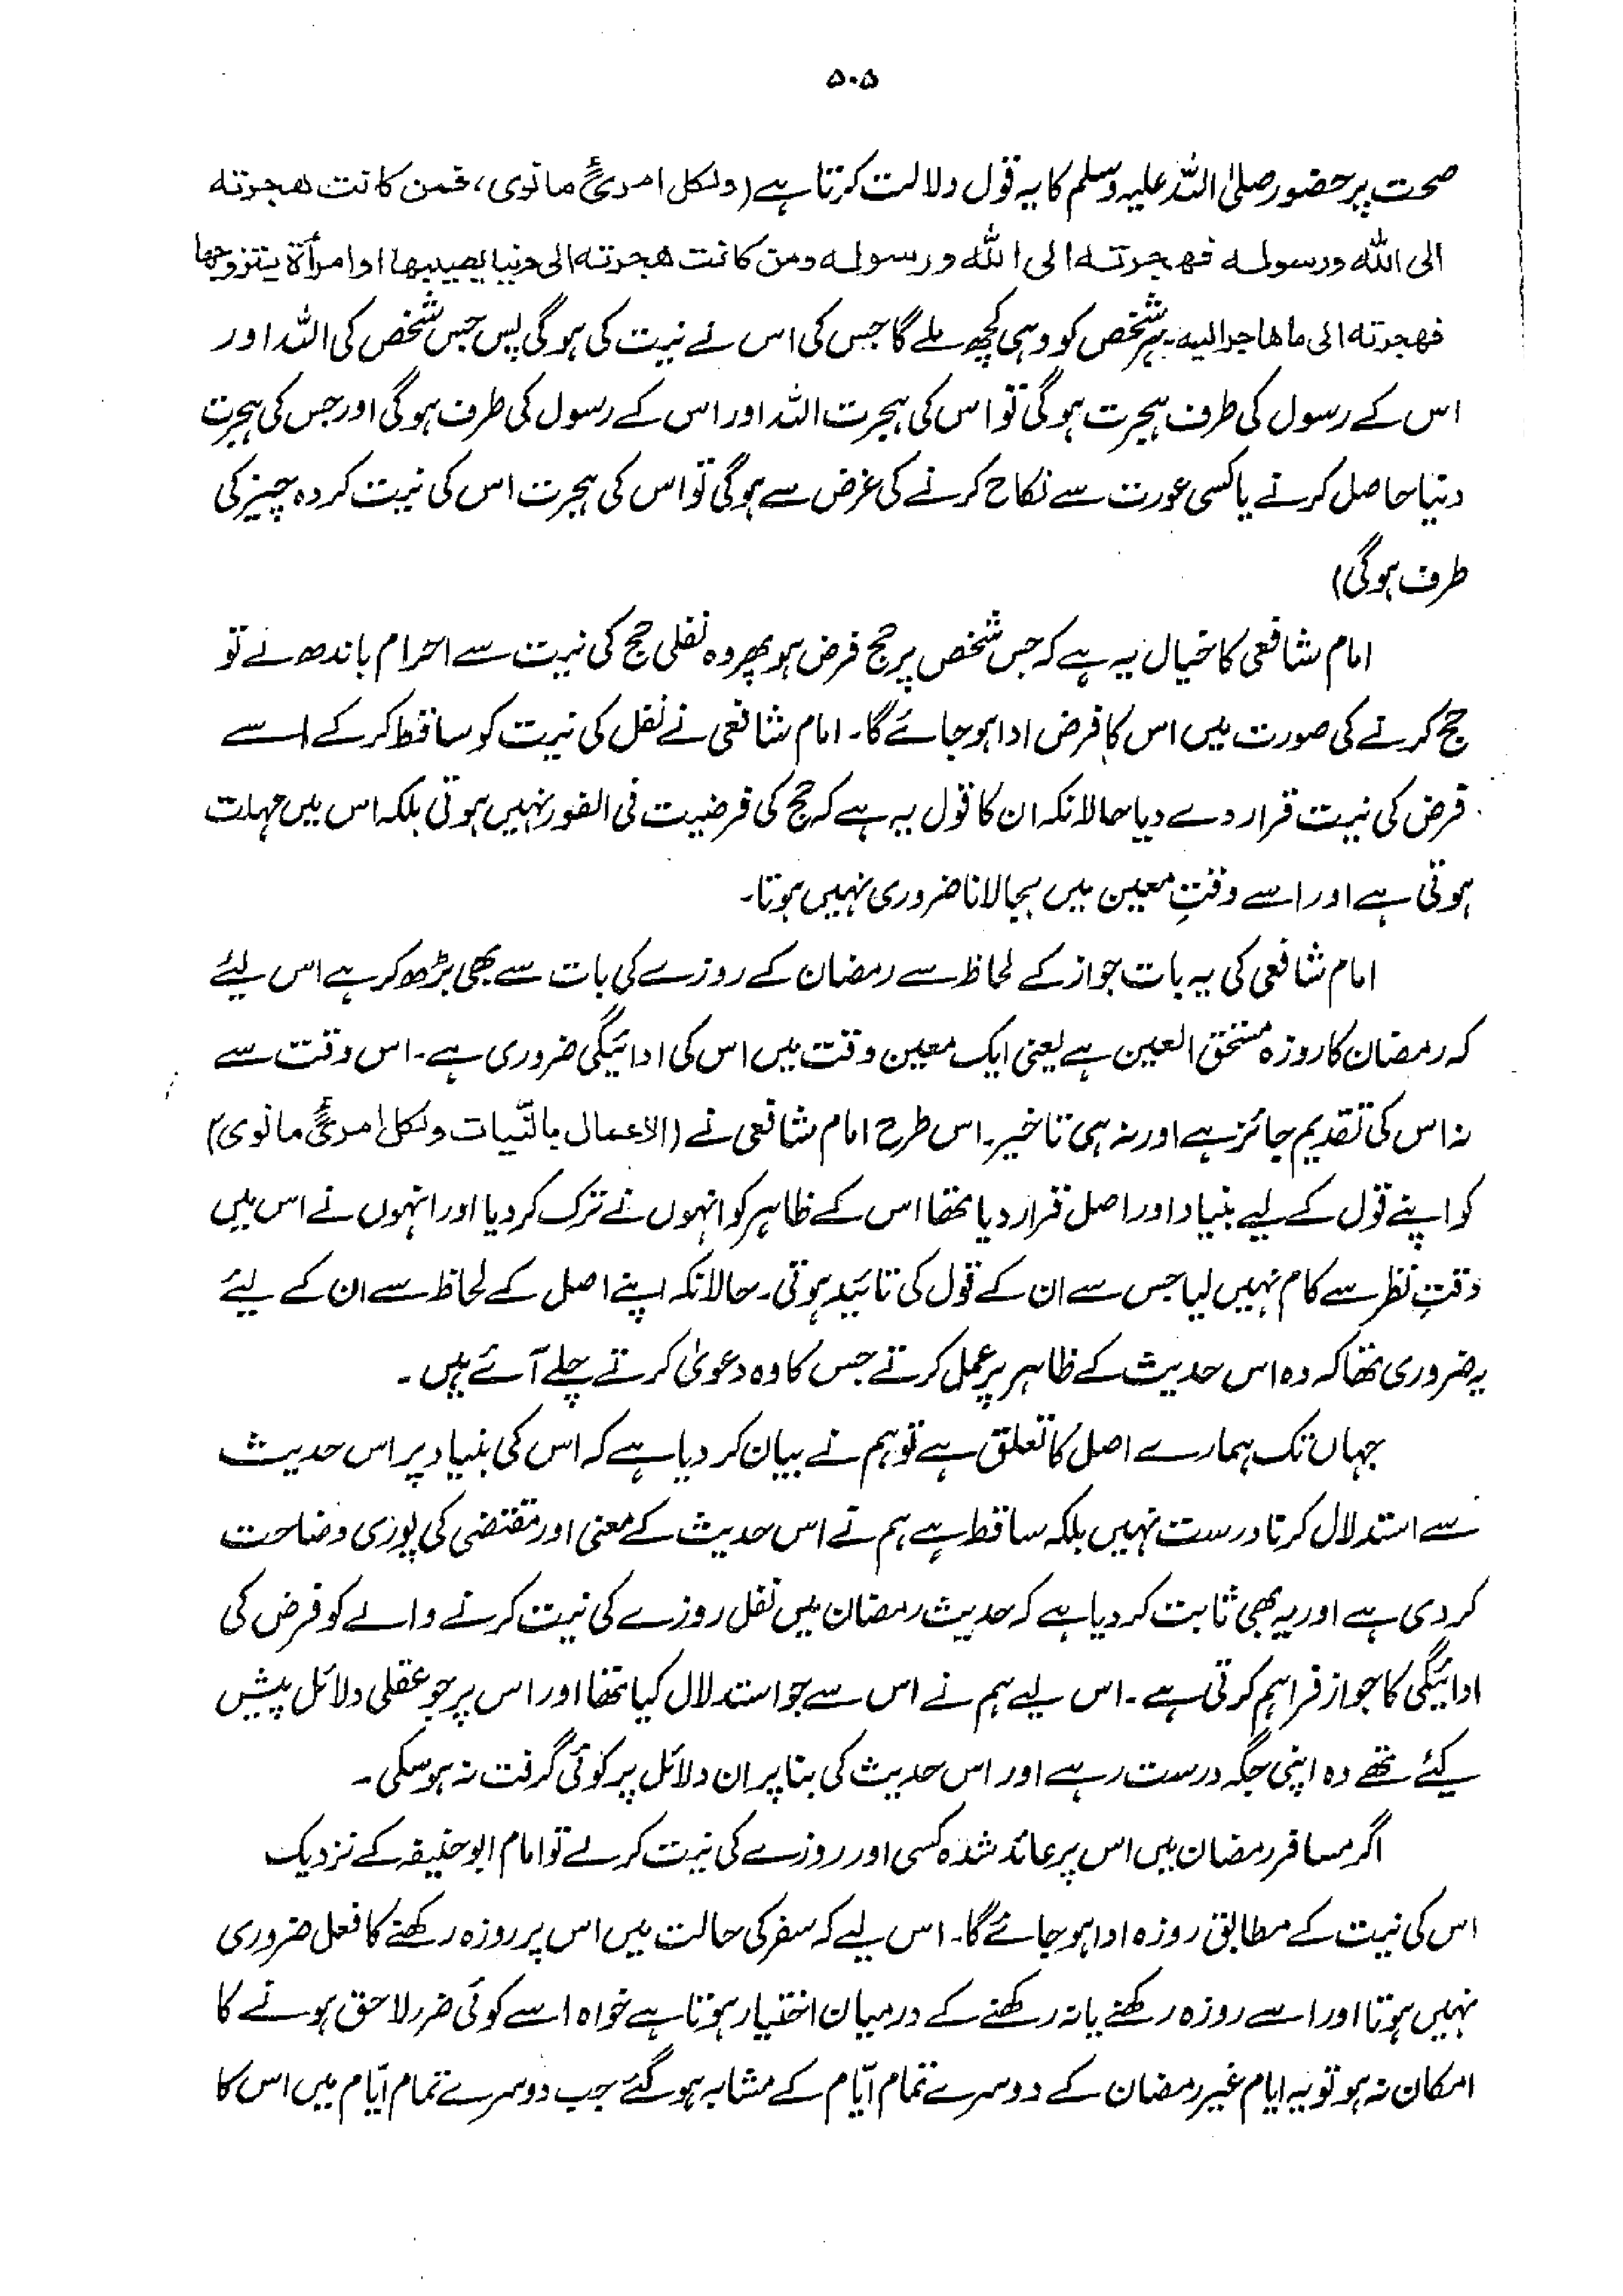 ۵۰۵
صحت پر حضور صلی اللہ علیہ وسلم کا یہ قول دلالت کرتا ہے (ولکل امرئ مانوی، فمن کانت ھجرتہ
الی اللہ ورسولہ فھجرتہ الی اللہ ورسولہ ومن کانت ھجرتہ الی دنیا یصیبھا او امرأۃ یتزوجھا
فھجرتہ الی ماھاجر الیہ۔ ہر شخص کو وہی کچھ ملے گا جس کی اس نے نیت کی ہوگی پس جس شخص کی اللہ اور
اس کے رسول کی طرف ہجرت ہوگی تو اس کی ہجرت اللہ اور اس کے رسول کی طرف ہوگی اور جس کی ہجرت
دنیا حاصل کرنے یا کسی عورت سے نکاح کرنے کی غرض سے ہوگی تو اس کی ہجرت اس کی نیت کردہ چیز کی
طرف ہوگی)
امام شافعی کا خیال یہ ہے کہ جس شخص پر حج فرض ہو پھر وہ نفلی حج کی نیت سے احرام باندھ لے تو
حج کرنے کی صورت میں اس کا فرض ادا ہو جائے گا۔ امام شافعی نے نفل کی نیت کو ساقط کرکے اسے
فرض کی نیت قرار دے دیا حالانکہ ان کا قول یہ ہے کہ حج کی فرضیت فی الفور نہیں ہوتی بلکہ اس میں مہلت
ہوتی ہے اور اسے وقتِ معین میں بجالانا ضروری نہیں ہوتا۔
امام شافعی کی یہ بات جواز کے لحاظ سے رمضان کے روزے کی بات سے بھی بڑھ کر ہے اس لیئے
کہ رمضان کا روزہ مستحق العین ہے یعنی ایک معین وقت میں اس کی ادائیگی ضروری ہے۔ اس وقت سے
نہ اس کی تقدیم جائز ہے اور نہ ہی تاخیر۔ اس طرح امام شافعی نے (الاعمال بالنّیات ولکل امرئ مانوی)
کو اپنے قول کے لیے بنیاد اور اصل قرار دیا تھا اس کے ظاہر کو انہوں نے ترک کر دیا اور انہوں نے اس میں
دقتِ نظر سے کام نہیں لیا جس سے ان کے قول کی تائید ہوتی۔ حالانکہ اپنے اصل کے لحاظ سے ان کے لیئے
یہ ضروری تھا کہ وہ اس حدیث کے ظاہر پر عمل کرتے جس کا وہ دعویٰ کرتے چلے آئے ہیں۔
جہاں تک ہمارے اصل کا تعلق ہے تو ہم نے بیان کر دیا ہے کہ اس کی بنیاد پر اس حدیث
سے استدلال کرنا درست نہیں بلکہ ساقط ہے ہم نے اس حدیث کے معنی اور مقتضی کی پوری وضاحت
کردی ہے اور یہ بھی ثابت کر دیا ہے کہ حدیث رمضان میں نفل روزے کی نیت کرنے والے کو فرض کی
ادائیگی کا جواز فراہم کرتی ہے۔ اس لیے ہم نے اس سے جو استدلال کیا تھا اور اس پر جو عقلی دلائل پیش
کیئے تھے وہ اپنی جگہ درست رہے اور اس حدیث کی بنا پر ان دلائل پر کوئی گرفت نہ ہو سکی۔
اگر مسافر رمضان میں اس پر عائد شدہ کسی اور روزے کی نیت کرلے تو امام ابوحنیفہ کے نزدیک
اس کی نیت کے مطابق روزہ ادا ہو جائے گا۔ اس لیے کہ سفر کی حالت میں اس پر روزہ رکھنے کا فعل ضروری
نہیں ہوتا اور اسے روزہ رکھنے یا نہ رکھنے کے درمیان اختیار ہوتا ہے خواہ اسے کوئی ضرر لاحق ہونے کا
امکان نہ ہو تو یہ ایام غیر رمضان کے دوسرے تمام ایّام کے مشابہ ہو گئے جب دوسرے تمام ایّام میں اس کا